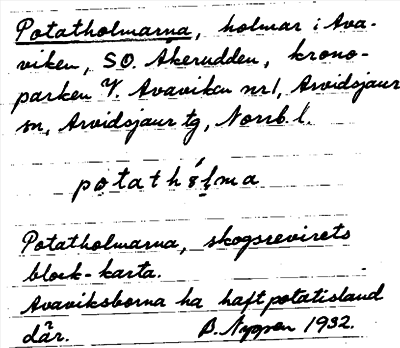 Potatholmarna, holmar i Ava-
viken, SO. Akerudden, krono-
parken V. Avaviken nr 1, Arvidsjaur
sn, Arvidsjaur tg, Norrb. l.
Potatholmarna, skogsrevirets
block-karta.
Avaviksborna ha haft potatisland
där. B. Nygren 1932.